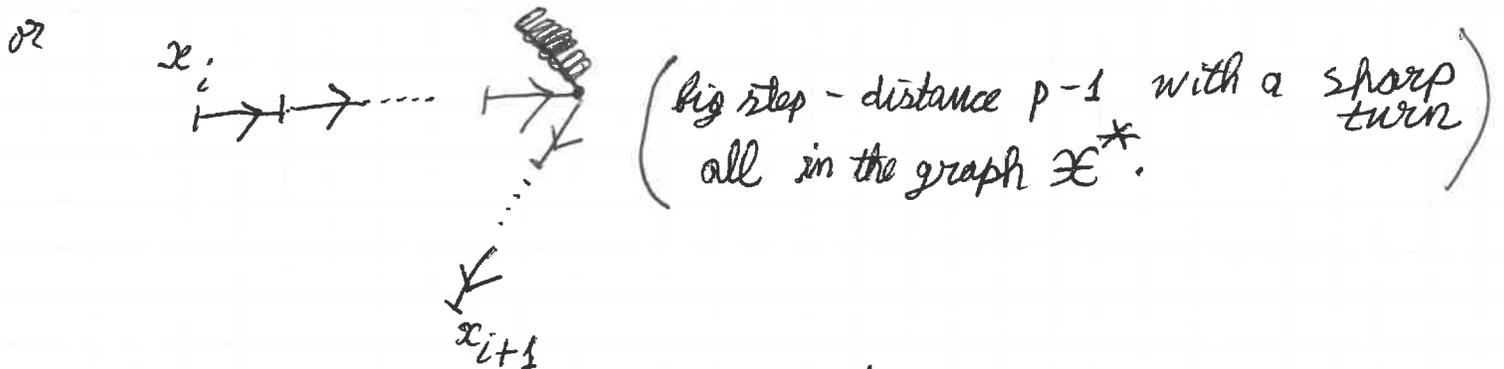 or
x_i
(big step - distance p-1 with a sharp turn
all in the graph X^*.)
x_{i+1}